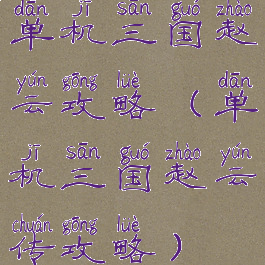 dān jī sān guó zhào
单机三国赵
yún gōng lüè dān
云攻略(单
jī sān guó zhào yún
机三国赵云
chuán gōng lüè
传攻略)